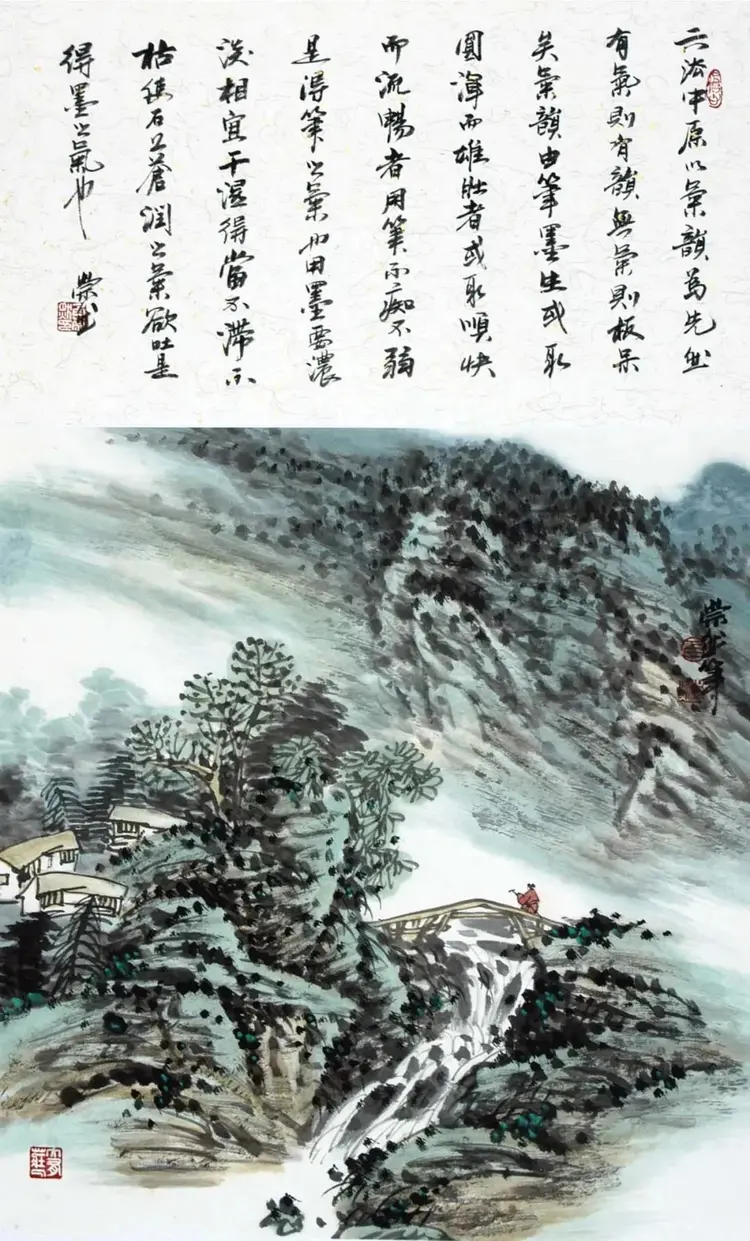 六法中原以氣韻為先然
有氣則有韻無氣則板呆
矣氣韻由筆墨生或取
圓渾而雄壯者或取順快
而流暢者用筆不痴不弱
是得筆之氣也用墨要濃
淡相宜干濕得當不滯不
枯使石上蒼潤之氣欲吐是
得墨之氣也